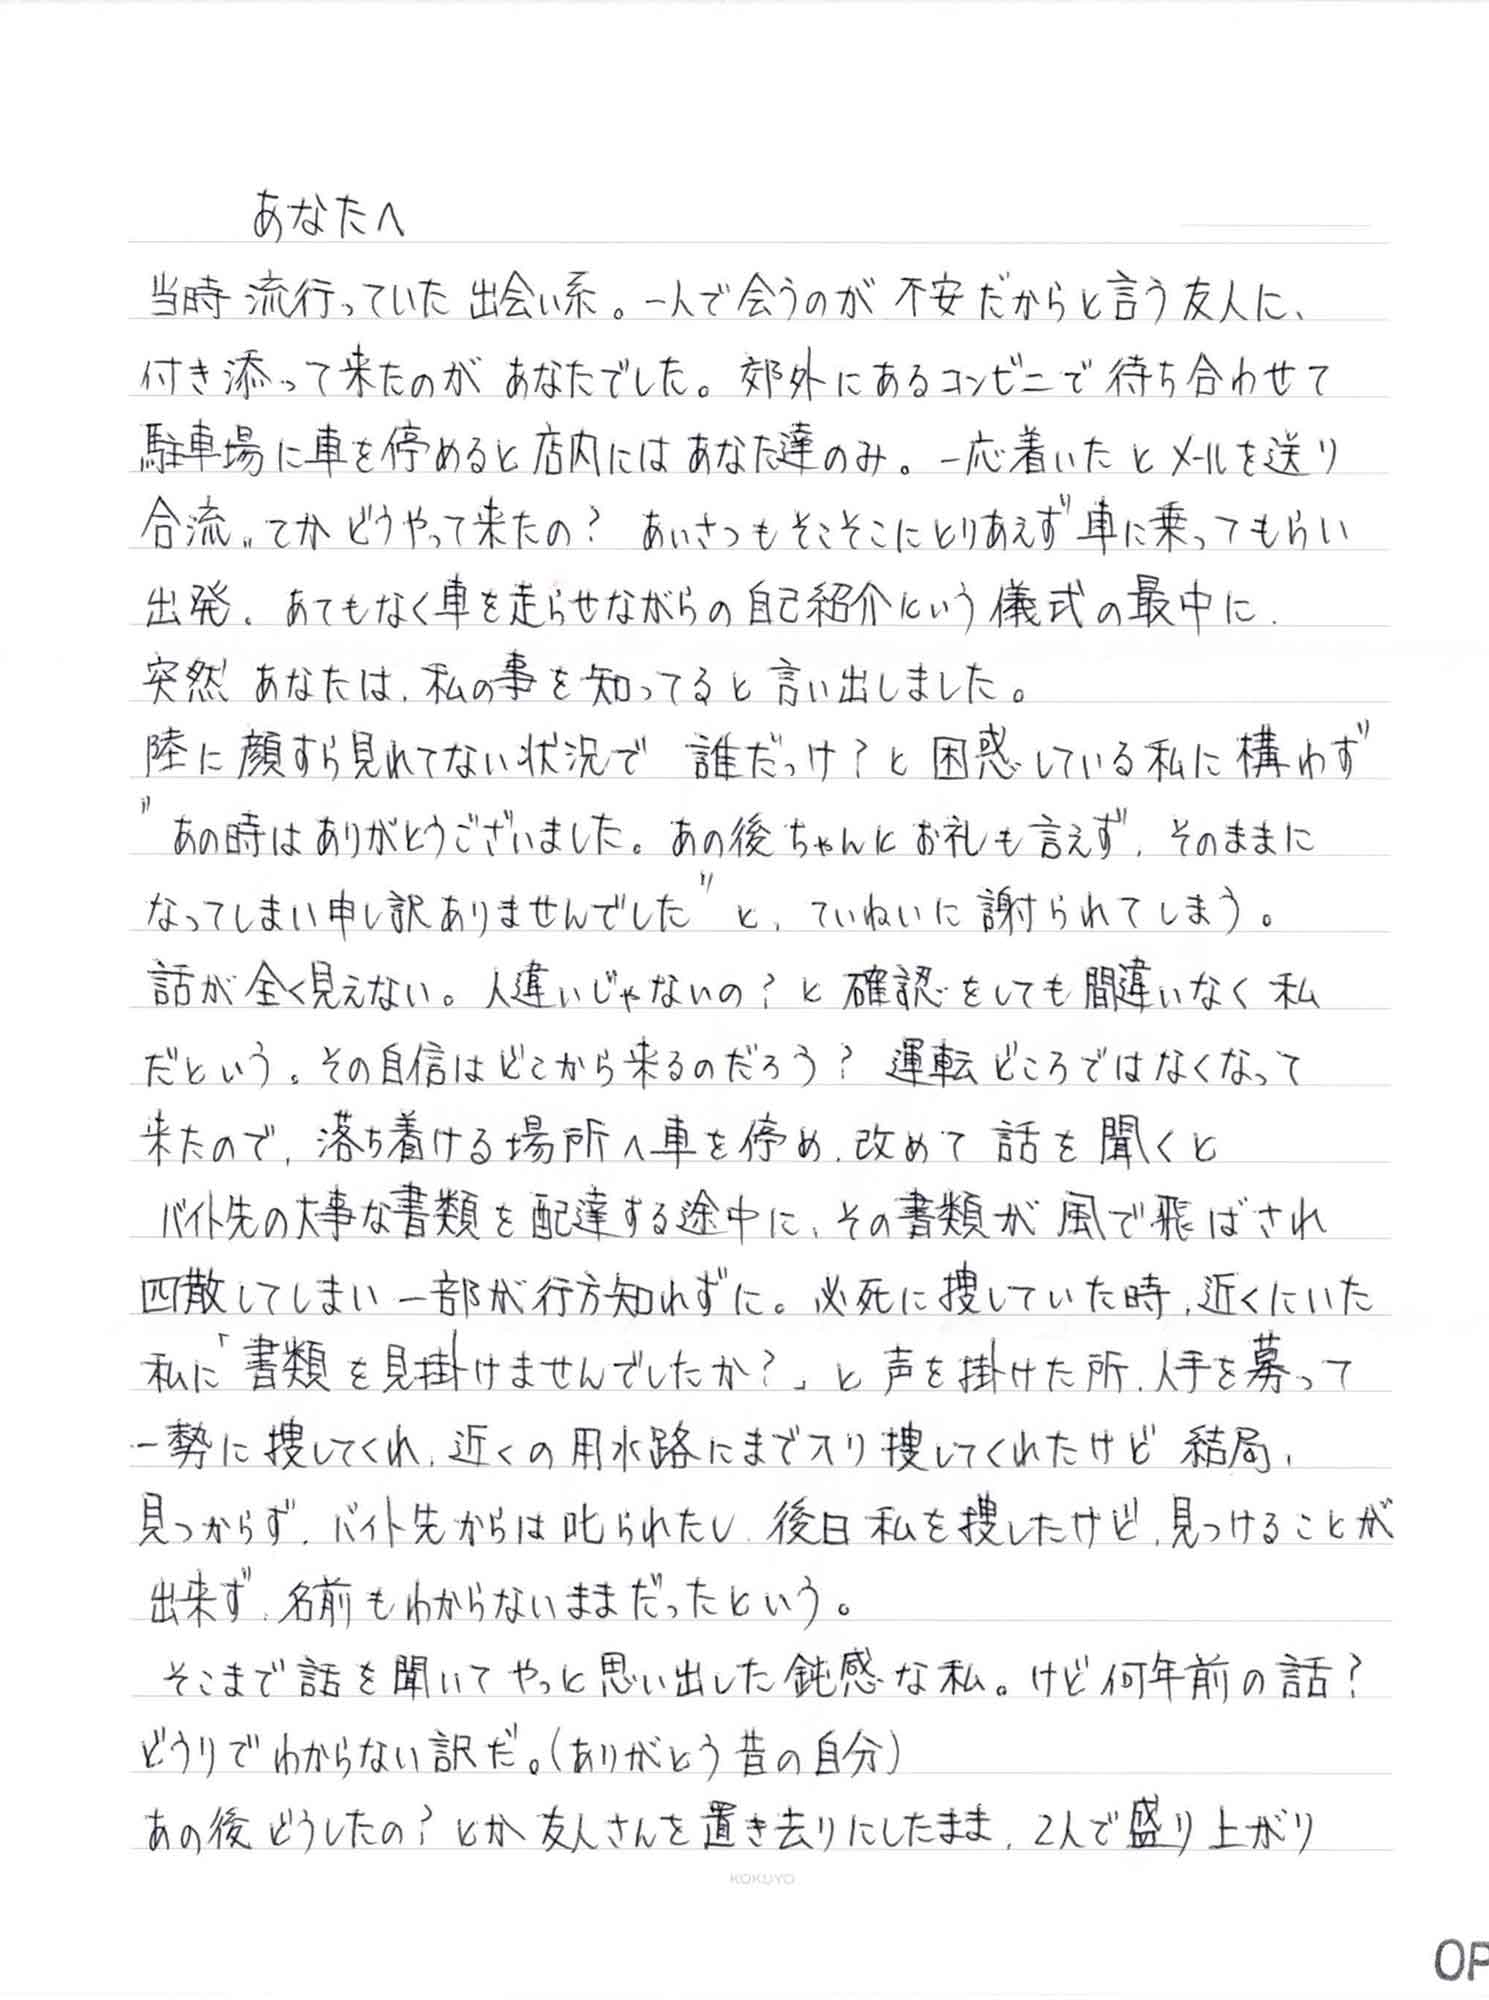 あなたへ
当時 流行っていた 出会い系。一人で会うのが 不安だからと言う友人に、
付き添って来たのが あなたでした。郊外にあるコンビニで待ち合わせて
駐車場に車を停めると店内にはあなた達のみ。一応着いたとメールを送り
合流。てか どうやって来たの? あいさつもそこそこにとりあえず車に乗ってもらい
出発。あてもなく車を走らせながらの自己紹介という儀式の最中に、
突然 あなたは、私の事を知ってると言い出しました。
陸に顔すら見れてない状況で 誰だっけ?と困惑している私に構わず
"あの時はありがとうございました。あの後ちゃんとお礼も言えず、そのままに
なってしまい申し訳ありませんでした"と、ていねいに謝られてしまう。
話が全く見えない。人違いじゃないの?と確認をしても間違いなく私
だという。その自信はどこから来るのだろう? 運転どころではなくなって
来たので、落ち着ける場所へ車を停め、改めて話を聞くと
バイト先の大事な書類を配達する途中に、その書類が風で飛ばされ
四散してしまい一部が行方知れずに。必死に捜していた時、近くにいた
私に「書類を見掛けませんでしたか?」と声を掛けた所、人手を募って
一勢に捜してくれ、近くの用水路にまで入り捜してくれたけど結局、
見つからず、バイト先からは叱られたし、後日私を捜したけど、見つけることが
出来ず、名前もわからないままだったという。
そこまで話を聞いてやっと思い出した鈍感な私。けど何年前の話?
どうりでわからない訳だ。(ありがとう昔の自分)
あの後どうしたの?とか友人さんを置き去りにしたまま、2人で盛り上がり
KOKUYO
OP